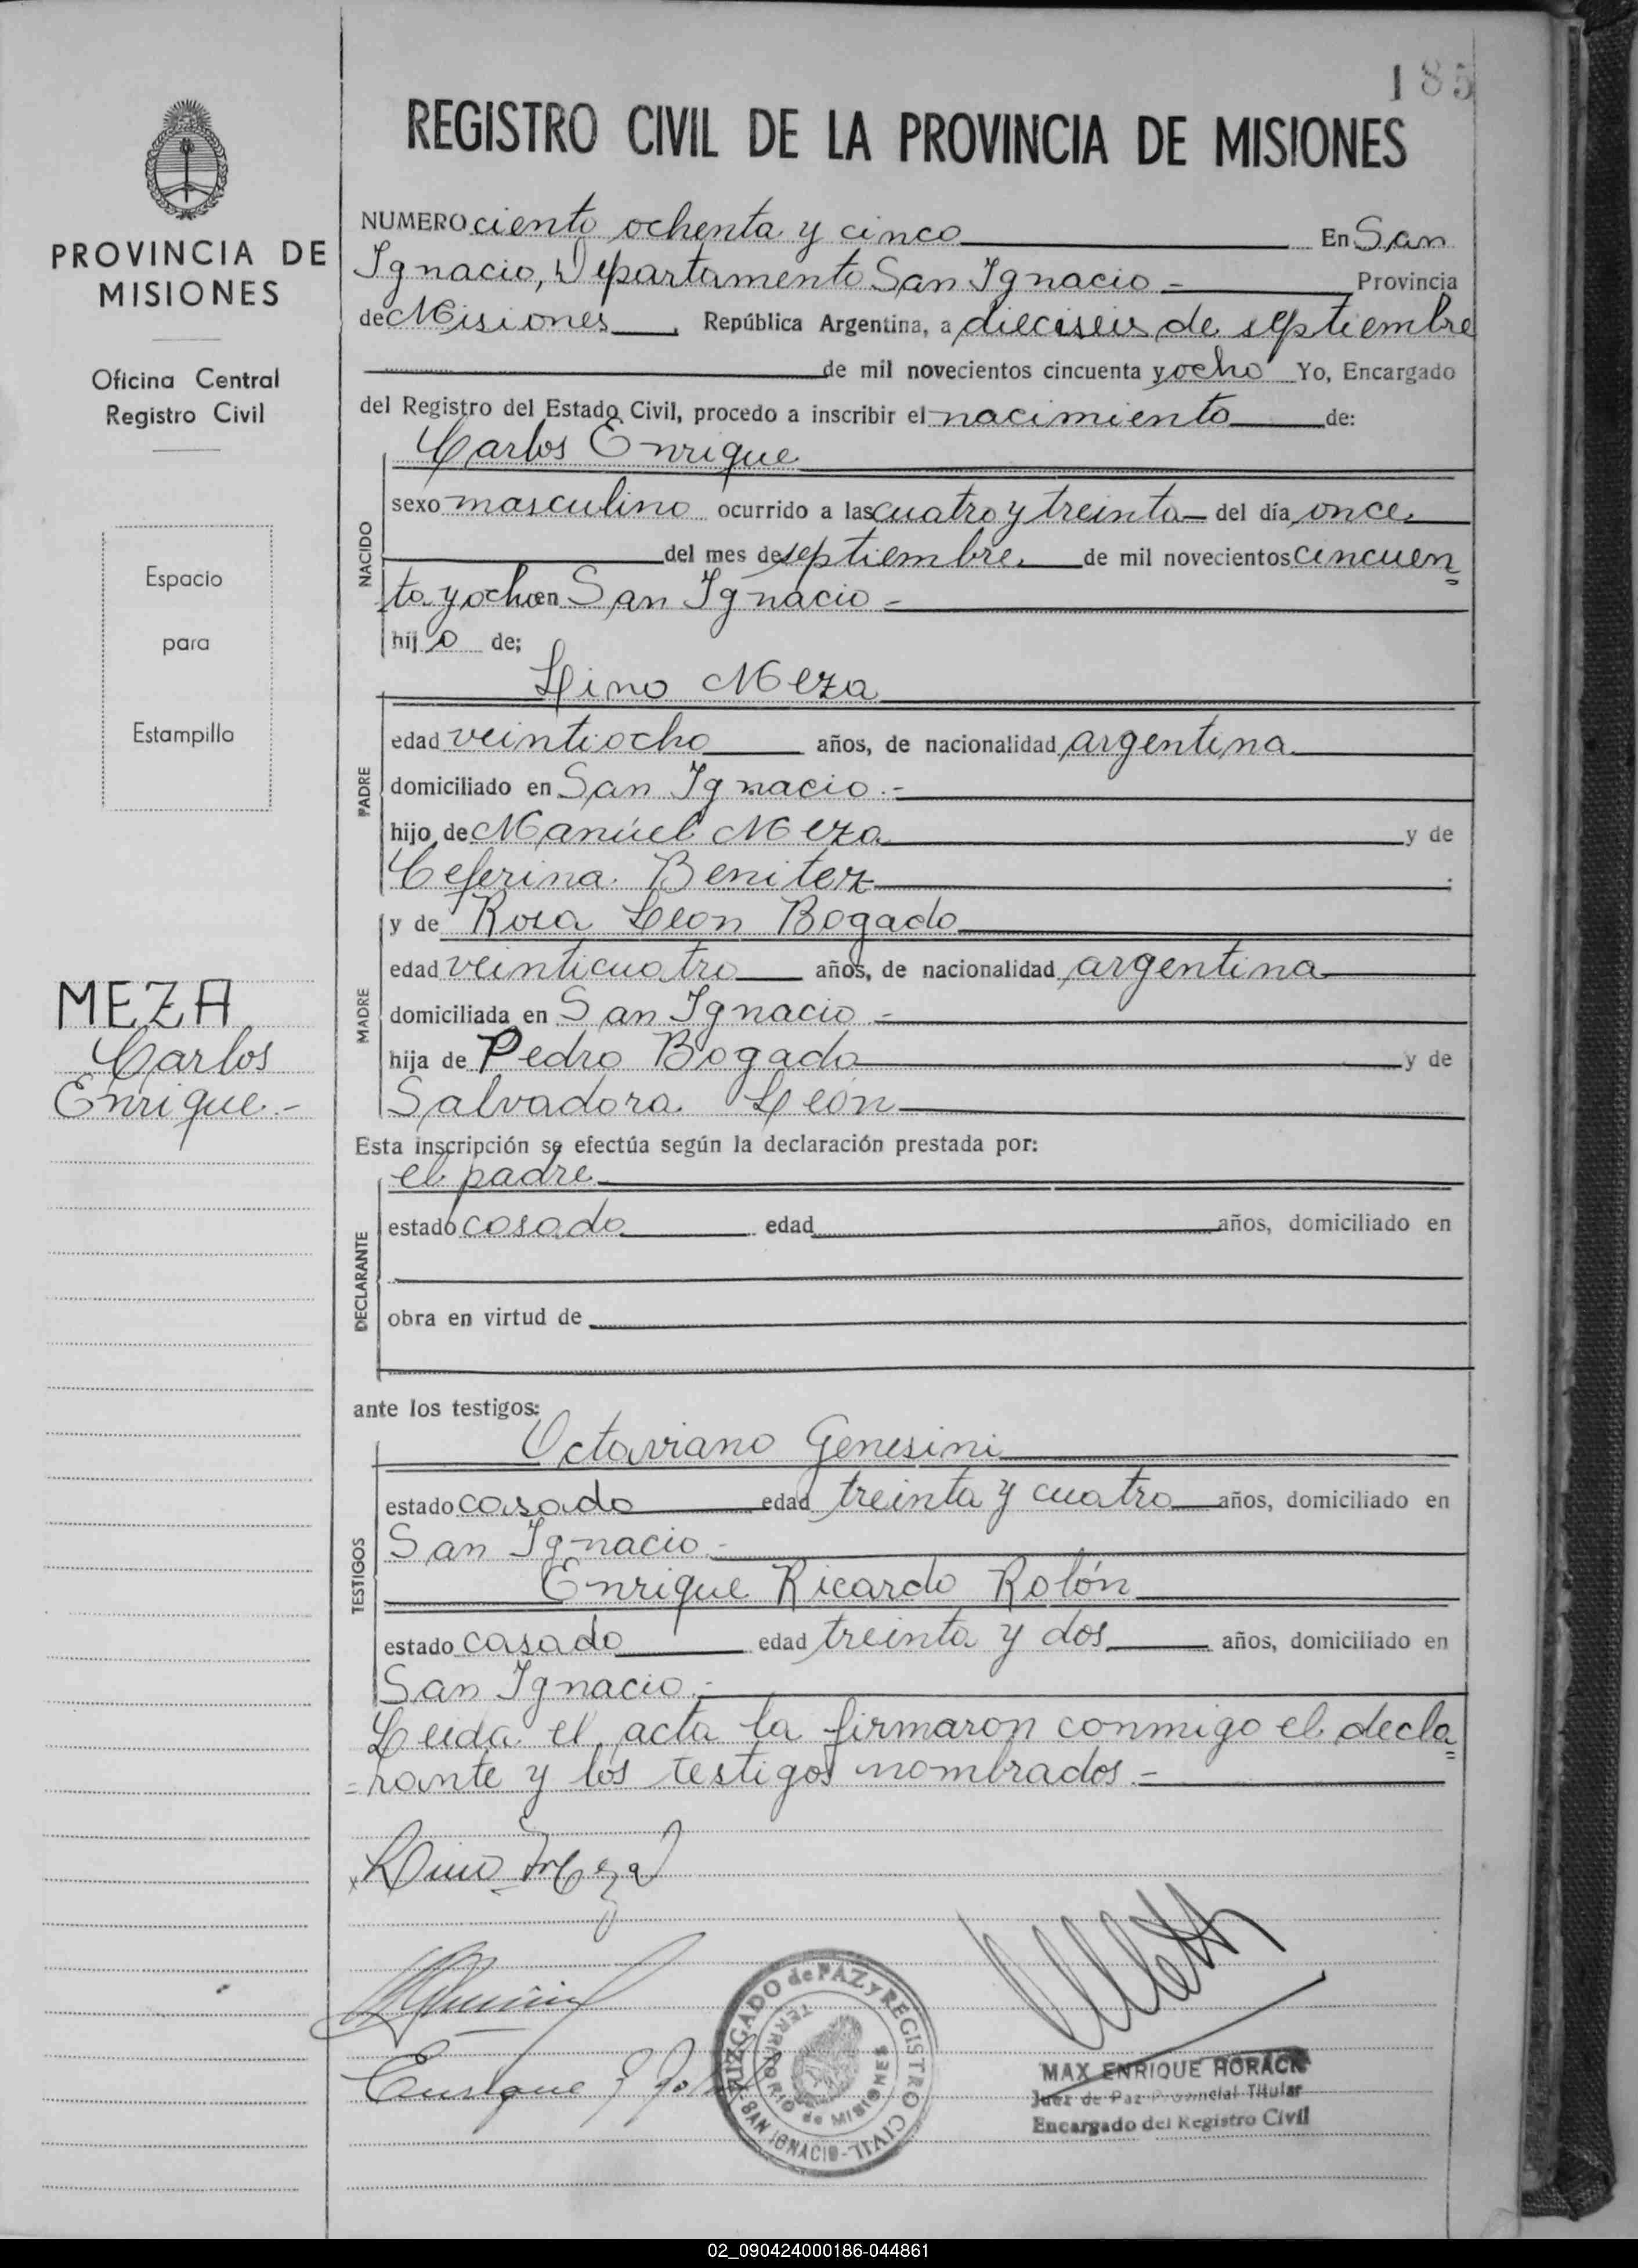 185
REGISTRO CIVIL DE LA PROVINCIA DE MISIONES
PROVINCIA DE
MISIONES
Oficina Central
Registro Civil
Espacio
para
Estampilla
MEZA
Carlos
Enrique.-
NUMERO ciento ochenta y cinco En San
Ignacio, Departamento San Ignacio - Provincia
de Misiones, República Argentina, a dieciseis de septiembre
de mil novecientos cincuenta y ocho Yo, Encargado
del Registro del Estado Civil, procedo a inscribir el nacimiento de:
Carlos Enrique
NACIDO
sexo masculino ocurrido a las cuatro y treinta del día once
del mes de septiembre de mil novecientos cincuen
ta y ocho en San Ignacio -
hijo de;
Lino Meza
PADRE
edad veintiocho años, de nacionalidad argentina
domiciliado en San Ignacio.-
hijo de Manúel Meza y de
Ceferina Benitez
y de Rosa Leon Bogado
MADRE
edad veinticuatro años, de nacionalidad argentina
domiciliada en San Ignacio -
hija de Pedro Bogado y de
Salvadora León
Esta inscripción se efectúa según la declaración prestada por:
el padre
DECLARANTE
estado casado edad años, domiciliado en
obra en virtud de
ante los testigos:
Octaviano Genesini
TESTIGOS
estado casado edad treinta y cuatro años, domiciliado en
San Ignacio -
Enrique Ricardo Rolón
estado casado edad treinta y dos años, domiciliado en
San Ignacio.-
Leida el acta la firmaron conmigo el decla
=rante y los testigos nombrados.-
Lino Meza
Enrique
JUZGADO de PAZ y REGISTRO CIVIL - SAN IGNACIO
TERRITORIO de MISIONES
MAX ENRIQUE HORACK
Juez de Paz Provincial Titular
Encargado del Registro Civil
02_090424000186-044861